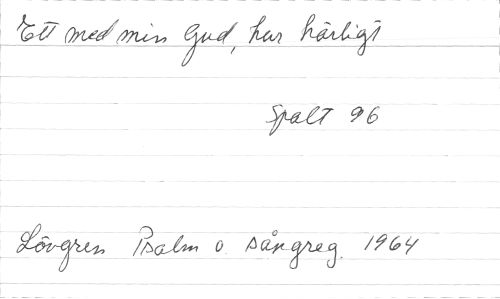 Ett med min Gud, hur härligt
Spalt 96
Lövgren Psalm o. sångreg. 1964